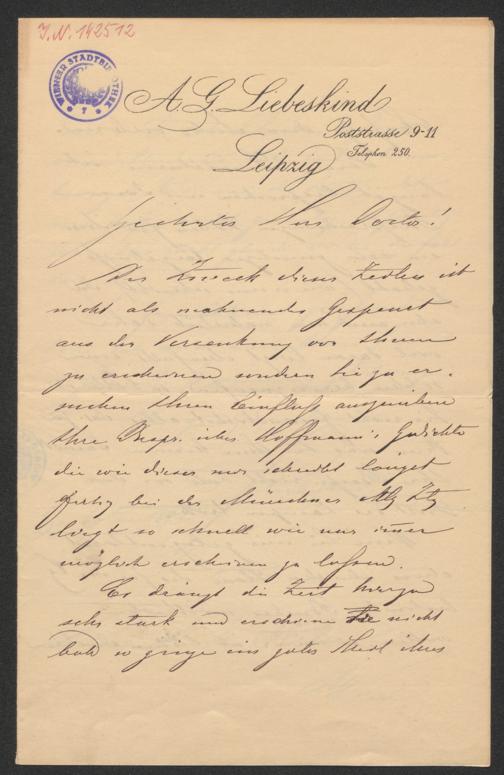 J.N. 142512
WIENER STADTBIBLIOTHEK
A. G. Liebeskind
Poststrasse 9-11
Telephon 250.
Leipzig
Geehrter Herr Doctor!
Der Zweck dieser Zeilen ist
nicht als mahnendes Gespenst
aus der Versenkung vor Ihnen
zu erscheinen sondern Sie zu er-
suchen Ihren Einfluß auszuüben
Ihre Bespr. über Hoffmann's Gedichte
die wie dieser mir schreibt längst
fertig bei der Münchner Allg Ztg
liegt so schnell wie nur immer
möglich erscheinen zu lassen.
Es drängt die Zeit hierzu
sehr stark und erscheine sie nicht
bald so ginge ein guter Theil ihres